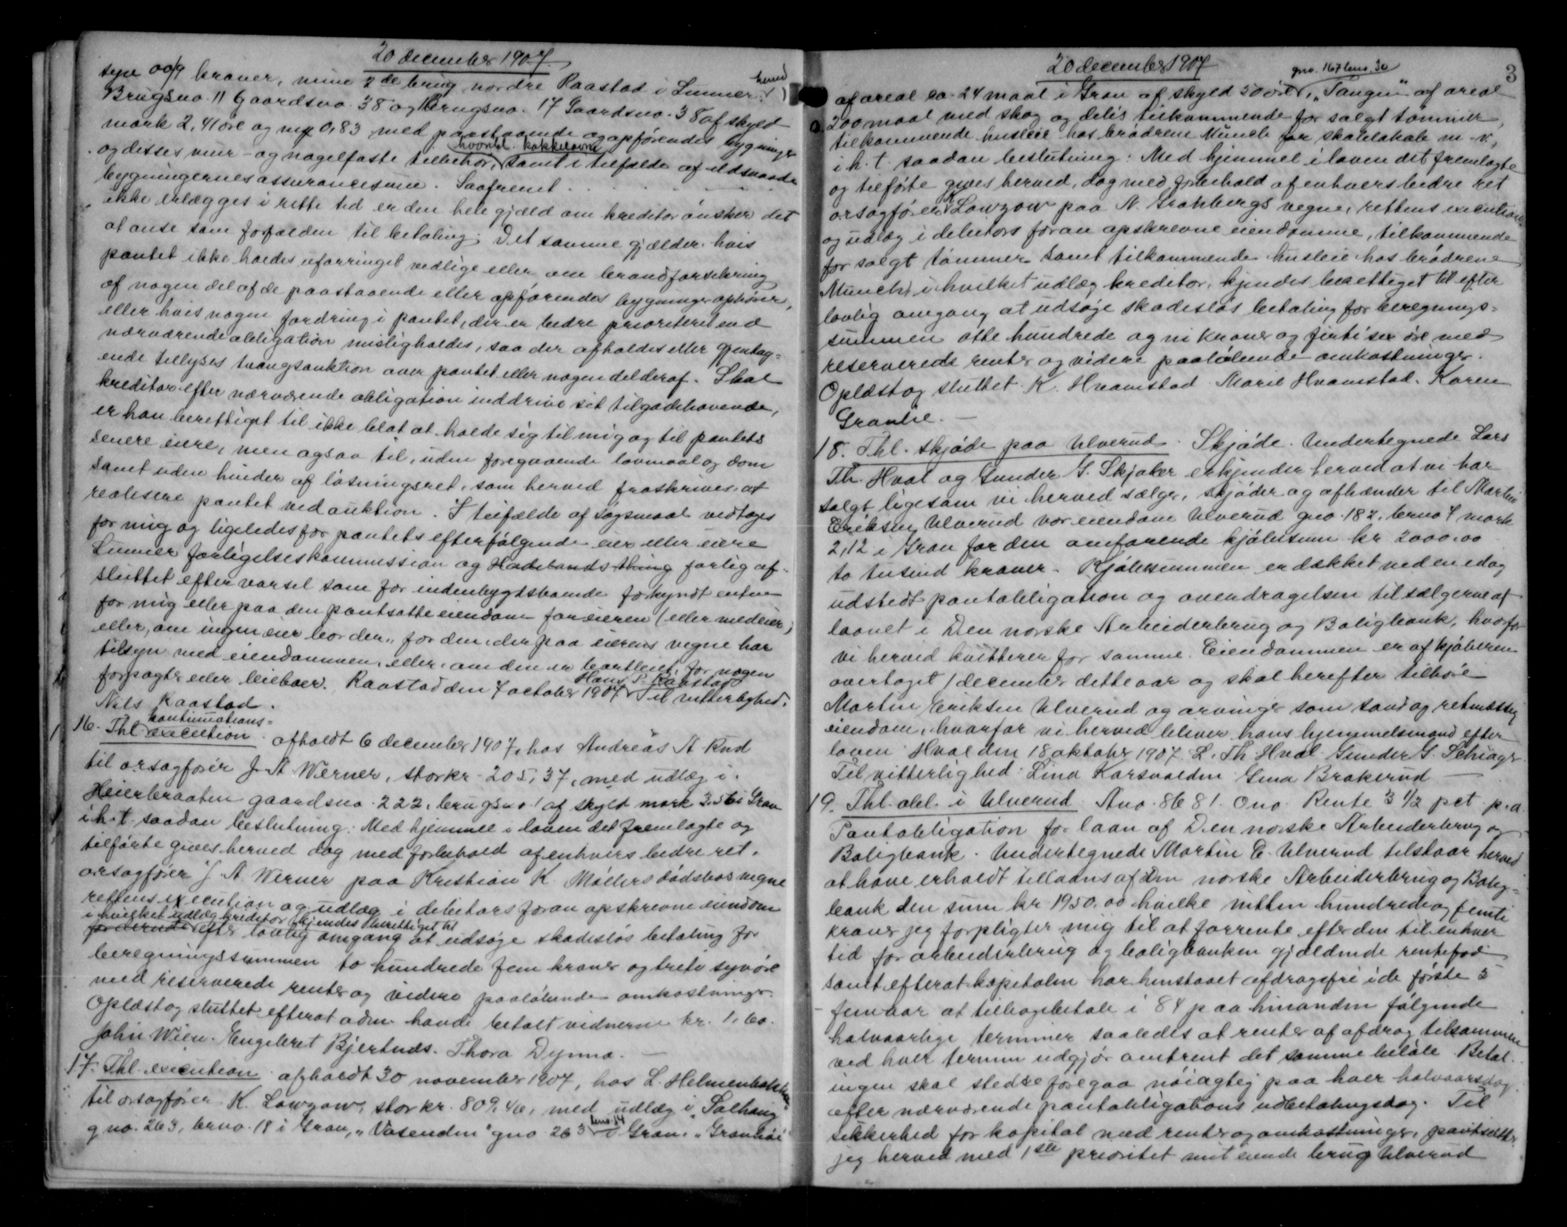 20 december 1907.
syv 00/9 kroner, mine 2de brug nordre Raastad i Lunner herred
Brugsno. 11 Gaardsno. 38 og Brugsno. 17 Gaardsno. 38 af skyld
mark 2,41 öre og mrk 0,83, med paastaaende og opförendes bygninger
og disses mur- og nagelfaste tilbehör, hvorved kakkelovne samt i tilfælde af ildsvaade
bygningernes assurancesum. Saafremt . . . .
ikke erlægges i rette tid er den hele gjæld om kreditor önsker det
at anse som forfalden til betaling. Det samme gjælder hvis
pantet ikke holdes uforringet vedlige eller om brandforsikring
af nogen del af de paastaaende eller opförendes bygninger ophörer,
eller hvis nogen fordring i pantet, der er bedre prioriteret end
nærværende obligation misligholdes, saa der afholdes eller gjentag-
ende tillyses tvangsauktion over pantet eller nogen del deraf. Skal
kreditor efter nærværende obligation inddrive sit tilgodehavende,
er han berettiget til ikke blot at holde sig til mig og til pantets
senere eiere, men ogsaa til, uden foregaaende lovmaal og dom
samt uden hinder af lösningsret, som herved fraskrives, at
realisere pantet ved auktion. I tilfælde af sogsmaal vedtages
for mig og ligeledes for pantets efterfölgende eier eller eiere
Lunner forligelseskommission og Hadelands thing forlig af-
sluttet efter varsel som for indenbygdsboende forkyndt enten
for mig eller paa den pantsatte eiendom for eieren (eller medeier)
eller, om ingen eier bor der, for den, der paa eierens vegne har
tilsyn med eiendommen, eller, om den er bortleiet, for nogen
forpagter eller leieboer. Raastad den 7 october 1907. Hans P. Raastad Til vitterlighed.
Nils Raastad.
16. Thl. kontinuations-execution afholdt 6 december 1907, hos Andreas A. Rud
til orsagförer J. A. Werner, stor kr. 205,37, med udlæg i
Heierbraaten gaardsno. 222, brugsno. 1 af skyld mark 3.56 i Gran
i.h.t. saadan beslutning: Med hjemmel i loven det fremlagte og
tilförte gives herved dog med forbehold af enhvers bedre ret.
orsagförer J. A. Werner paa Kristian K. Möllers dödsbos vegne
rettens execution og udlæg i debitors foran opskrevne eiendom
i hvilket udlæg kreditor kjendes berettiget til efter lovlig omgang at udsöge skadeslös betaling for
beregningssummen to hundrede fem kroner og treti syv öre
med reserverede renter og videre paalöbende omkostninger.
Oplæst og sluttet efterat adm havde betalt vidnerne kr. 1.60.
John Wien. Engebret Bjertnæs. Thora Dynna. —
17. Thl. execution afholdt 30 november 1907, hos L. Helmenbakken
til orsagförer K. Lowzow, stor kr. 809,46, med udlæg i "Solhaug"
gno. 263, brno. 18 i Gran, "Vasenden" gno 263 brno 14 i Gran,
20 december 1907
3
af areal ca. 24 maal i Gran af skyld 50 öre, gno. 167 brno. 30 "Tangen" af areal
200 maal med skog og delis tilkommende for solgt tömmer,
tilkommende husleie hos brödrene Munch for skolelokale m. v.,
i.h.t. saadan beslutning: Med hjemmel i loven det fremlagte
og tilförte gives herved, dog med forbehold af enhvers bedre ret
orsagförer Lowzow paa N. vegne, rettens execution
og udlæg i debitors foran opskrevne eiendomme, tilkommende
for solgt tömmer samt tilkommende husleie hos brödrene
Munch, i hvilket udlæg kreditor kjendes berettiget til efter
lovlig omgang at udsöge skadeslös betaling for beregnings-
summen otte hundrede og ni kroner og förti sex öre med
reserverede renter og videre paalöbende omkostninger.
Oplæst og sluttet. K. Hvamstad. Marie Hvamstad. Karen
Granlie. —
18. Thl. skjöde paa Ulverud. Skjöde. Undertegnede Lars
Th. Hval og Gunder G. Skjaker erkjender herved at vi har
solgt ligesom vi herved sælger, skjöder og afhænder til Martin
Eriksen Ulverud vor eiendom Ulverud gno. 187, brno 4 mark
2,12 i Gran for den omforenede kjöbesum kr 2000.00
to tusind kroner. Kjöbesummen er dækket ved en idag
udstedt pantobligation og overdragelsen til sælgerne af
laanet i Den norske Arbeiderbrug og Boligbank, hvorfor
vi herved kvitterer for samme. Eiendommen er af kjöberen
overtaget 1 december dette aar og skal herefter tilhöre
Martin Eriksen Ulverud og arvinger som sand og retmæssig
eiendom, hvorfor vi herved bliver hans hjemmelsmænd efter
loven. Hval den 18 oktober 1907. L. Th. Hval. Gunder G. Schiager
Til vitterlighed: Lina Karsvolden Gina Brakerud —
19. Thl. obl. i Ulverud. Ano. 8681. Ono. Rente 3 1/2 pct. p.a.
Pantobligation for laan af Den norske Arbeiderbrug og
Boligbank. Undertegnede Martin E. Ulverud tilstaar herved
at have erholdt tillaans af Den norske Arbeiderbrug og Bolig-
bank den sum kr 1950.00 hvilke nitten hundrede og femti
kroner jeg forpligter mig til at forrente efter den til enhver
tid for arbeiderbrug og boligbanken gjældende rentefod
samt efterat kapitalen har henstaaet afdragsfri i de förste 5
- fem aar at tilbagebetale i 84 paa hinanden fölgende
halvaarlige terminer saaledes at renter af afdrag tilsammen
ved hver termin udgjör omtrent det samme belöb. Betal-
ingen skal stedse foregaa nöiagtig paa hver halvaarsdag
efter nærværende pantobligations udbetalingsdag. Til
sikkerhed for kapital med renter og omkostninger, pantsætter
jeg herved med 1ste prioritet mit eiende brug Ulverud